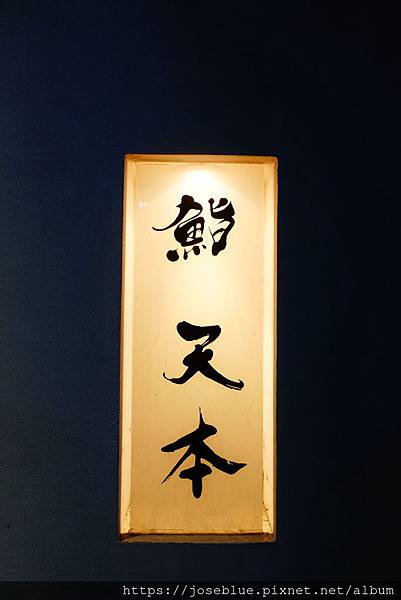 鮨天本
https://joseblue.pixnet.net/album